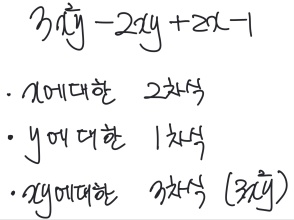 3x²y - 2xy + 2x - 1
· x에 대한 2차식
· y에 대한 1차식
· xy에 대한 3차식 (3x²y)